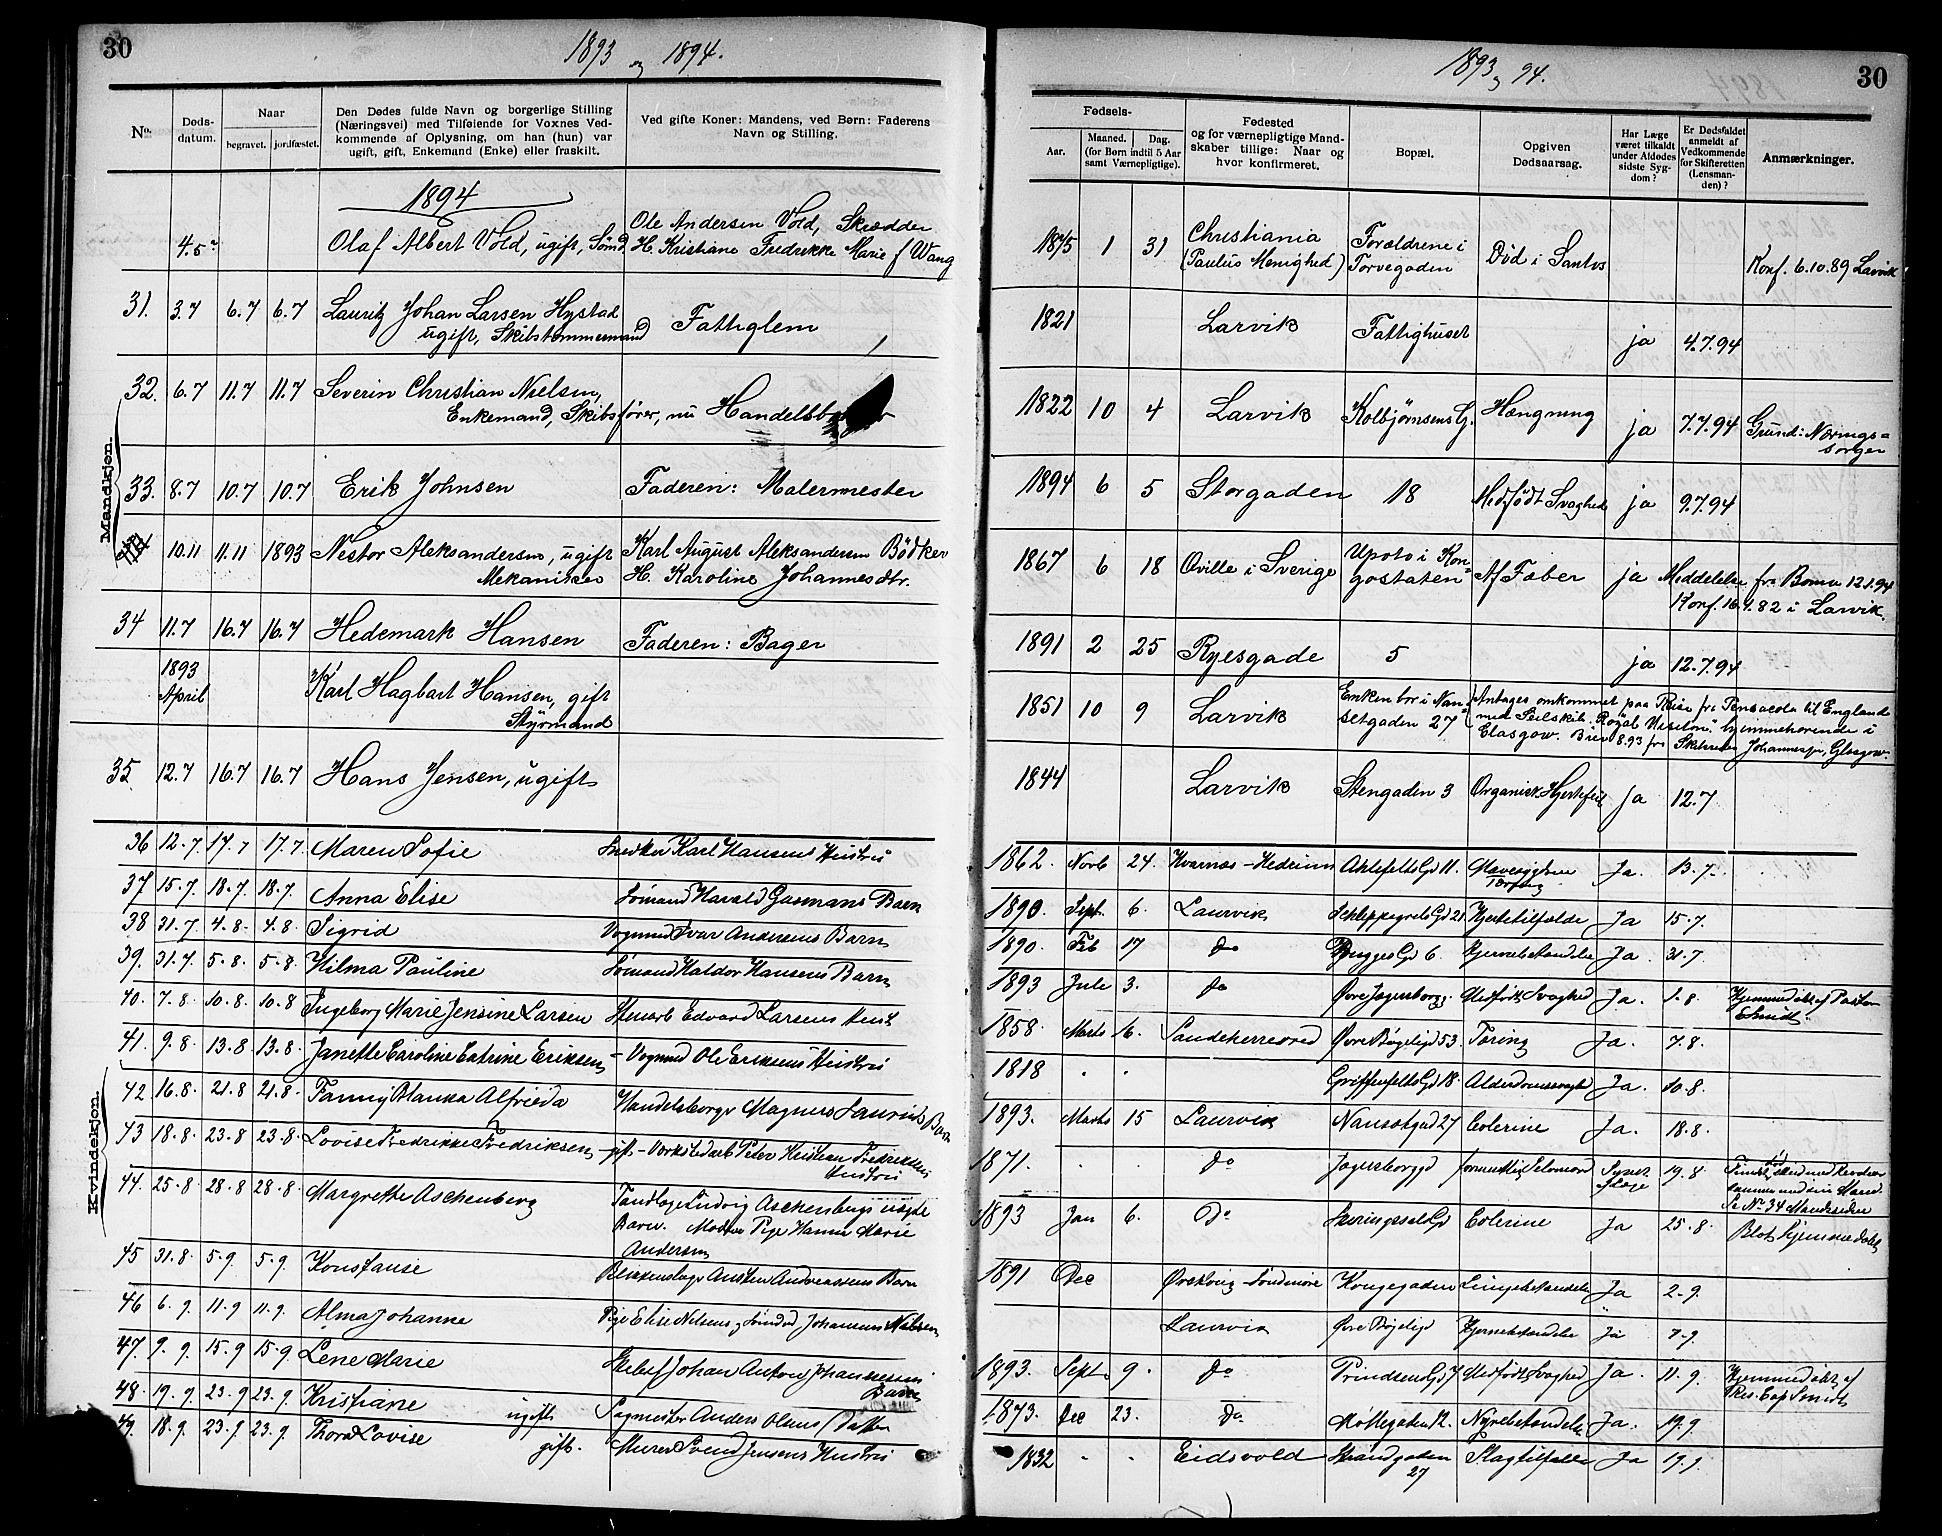 30
1893 og 1894.
No.
Døds-
datum.
Naar
begravet.
jordfæstet.
Den Dødes fulde Navn og borgerlige Stilling
(Næringsvei) med Tilføiende for Voxnes Ved-
kommende af Oplysning, om han (hun) var
ugift, gift, Enkemand (Enke) eller fraskilt.
Ved gifte Koner: Mandens, ved Børn: Faderens
Navn og Stilling.
Mandkjøn.
1894
4.5 Olaf Albert Vold, ugift, Sømd.
Ole Andersen Vold, Skrædder
H. Kristiane Fredrikke Marie f Wang
31. 3.7 6.7 6.7 Lauritz Johan Larsen Hystad
ugift, Skibstømmermand
Fattiglem
32. 6.7 11.7 11.7 Severin Christian Nielsen,
Enkemand, Skibsfører, nu
33. 8.7 10.7 10.7 Erik Johnsen Faderen: Malermester
10.11 11.11 1893 Nestor Aleksandersen, ugift
Karl August Aleksandersen Bödker
H. Karoline Johannesdtr.
34 11.7 16.7 16.7 Hedemark Hansen Faderen: Bager
1893
April
Karl Hagbart Hansen, gift
Styrmand
35. 12.7 16.7 16.7 Hans Jensen, ugift
Kvindekjøn.
36 12.7 17.7 17.7. Maren Sofie Snedker Karl Hansens Hustru
37 15.7. 18.7. 18.7. Anna Elise Sømand Harald Gasmans Barn
38 31.7. 4.8. 4.8. Sigrid Vognmd Ivar Andersens Barn
39. 31.7. 5.8. 5.8. Hilma Pauline Sømand Haldor Hansens Barn
40. 7.8. 10.8. 10.8 Ingeborg Marie Jensine Larsen Edvard Larsens Hust
41. 9.8. 13.8 13.8. Janette Caroline Catrine Eriksen - Vognmd Ole Eriksens Hustru
42 16.8. 21.8 21.8. Fanny Blanka Alfrieda Handelsborger Magnus Barn
43 18.8. 23.8 23.8. Lovise Fredrikke Fredriksen gift - Peter Kristian Fredriksens
Hustru
44. 25.8 28.8 28.8. Margrethe Aschenberg Tandlæge Ludvig Aschenbergs uægte
Barn. Moder Pige Hanna Marie
Andersen
45 31.8. 5.9. 5.9. Konstanse Blikkenslager Andreassens Barn
46 6.9. 11.9 11.9. Alma Johanne Pige Elise Nilsens og Johannes Nilsens
47. 9.9. 15.9 15.9. Lene Marie Johan Anton Johannessens
Barn
48. 19.9. 23.9 23.9. Kristiane ugift Sagmester Anders Olsens Datter
49. 18.9. 23.9 23.9. Thora Lovise gift. Murer Svend Jensens Hustru
1893 og 94.
30
Fødsels-
Aar.
Maaned.
Dag.
(for Børn indtil 5 Aar
samt Værnepligtige).
Fødested
og for værnepligtige Mand-
skaber tillige: Naar og
hvor konfirmeret.
Bopæl.
Opgiven
Dødsaarsag.
Har Læge
været tilkaldt
under Afdødes
sidste Syg-
dom?
Er Dødsfaldet
anmeldt af
Vedkommende
for Skifteretten
(Lensman-
den)?
Anmærkninger.
1875 1 31 Christiania
(Paulus Menighed)
Forældrene i
Torvegaden
Död i Santos
Konf. 6.10.89 Larvik
1821 Larvik Fattighuset ja 4.7.94
1822 10 4 Larvik Kolbjørnsens G. Hængning ja 7.7.94 Grund: Nærings=
sorger
1894 6 5 Storgaden 18 Medfödt Svaghed ja 9.7.94
1867 6 18 Oville i Sverige Upoto i Kon=
gostaten
Af Feber ja Meddelelse fra Boma 12.1.94
Konf. 16.4.82 i Larvik.
1891 2 25 Ryesgade 5 ja 12.7.94
1851 10 9 Larvik Enken bor i Nan=
setgaden 27
Antages omkommet paa Reise fra Pensacola til England
med Seilskib "Royal ", hjemmehørende i
Glasgow. Brev 8.93 fra Johannesen, Glasgow.
1844 Larvik Stengaden 3 Organisk Hjertefeil Ja 12.7
1862. Novb 24. Kvarnes - Hedrum Ahlefelts Gd 11. Tæring Ja. 13.7.
1890. Sept. 6. Laurvik Schleppegrels Gd 21. Hjertetilfælde Ja 15.7.
1890. Feb 17 do Brygges Gd 6. Hjernebetændelse Ja. 31.7.
1893 Jule 3. do Øvre Jegersborgg. Medfødt Svaghed Ja. 1.8. Hjemmedøbt af Pastor
Smidt.
1858. Marts 16. Sandeherreved Øvre Bøgeligd 53. Tæring Ja. 7.8.
1818 . . Griffenfelts Gd 18. Alderdomssvagh Ja. 10.8.
1893. Marts 15 Laurvik Nansetgad 27 Colerine Ja. 18.8.
1871. . . do Jegersborggd 19.8
Se No 34 Mandssiden
1893 Jan 6. Do Colerine Ja 25.8. Blot hjemmedøbt
1891 Dec Søndmøre Kongegaden Lungebetændelse Ja 2.9.
Laurvik Øvre Bøgeligd Hjernebetændelse Ja 7.9.
1893. Sept 9. do Prindsens Gd 7 Medfødt Svaghed Ja. 11.9. Hjemmedøbt af
Res. Cap Smidt
1873. Dec 23. do Møllegaden 12. Nyrebetændelse Ja. 19.9.
1832 . . Eidsvold Strandgaden
27
Slagtilfælde Ja 19.9.